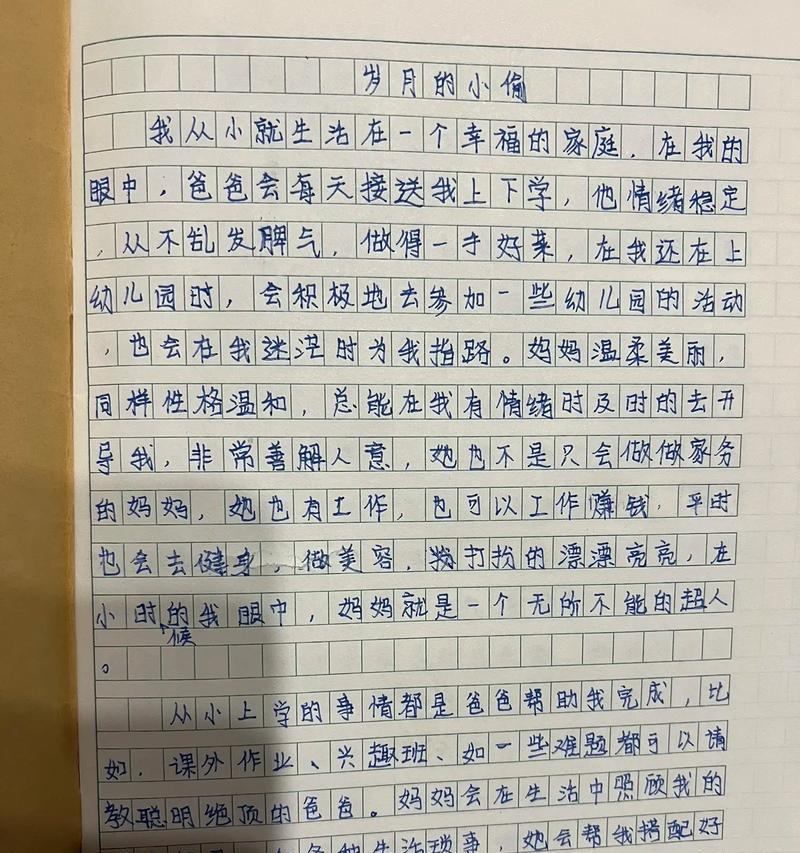 岁月的小偷
我从小就生活在一个幸福的家庭，在我的
眼中，爸爸会每天接送我上下学，他情绪稳定
，从不乱发脾气，做得一手好菜，在我还在上
幼儿园时，会积极地去参加一些幼儿园的活动
，也会在我迷茫时为我指路。妈妈温柔美丽，
同样性格温和，总能在我有情绪时及时的去开
导我，非常善解人意，她也不是只会做做家务
的妈妈，她也有工作，也可以工作赚钱，平时
也会去健身，做美容，打扮的漂漂亮亮，在
小时候的我眼中，妈妈就是一个无所不能的超人
。
从小上学的事情都是爸爸帮助我完成，比
如，课外作业、兴趣班、如一些难题都可以请
教聪明绝顶的爸爸。妈妈会在生活中照顾我的
各种生活琐事，她会帮我搭配好